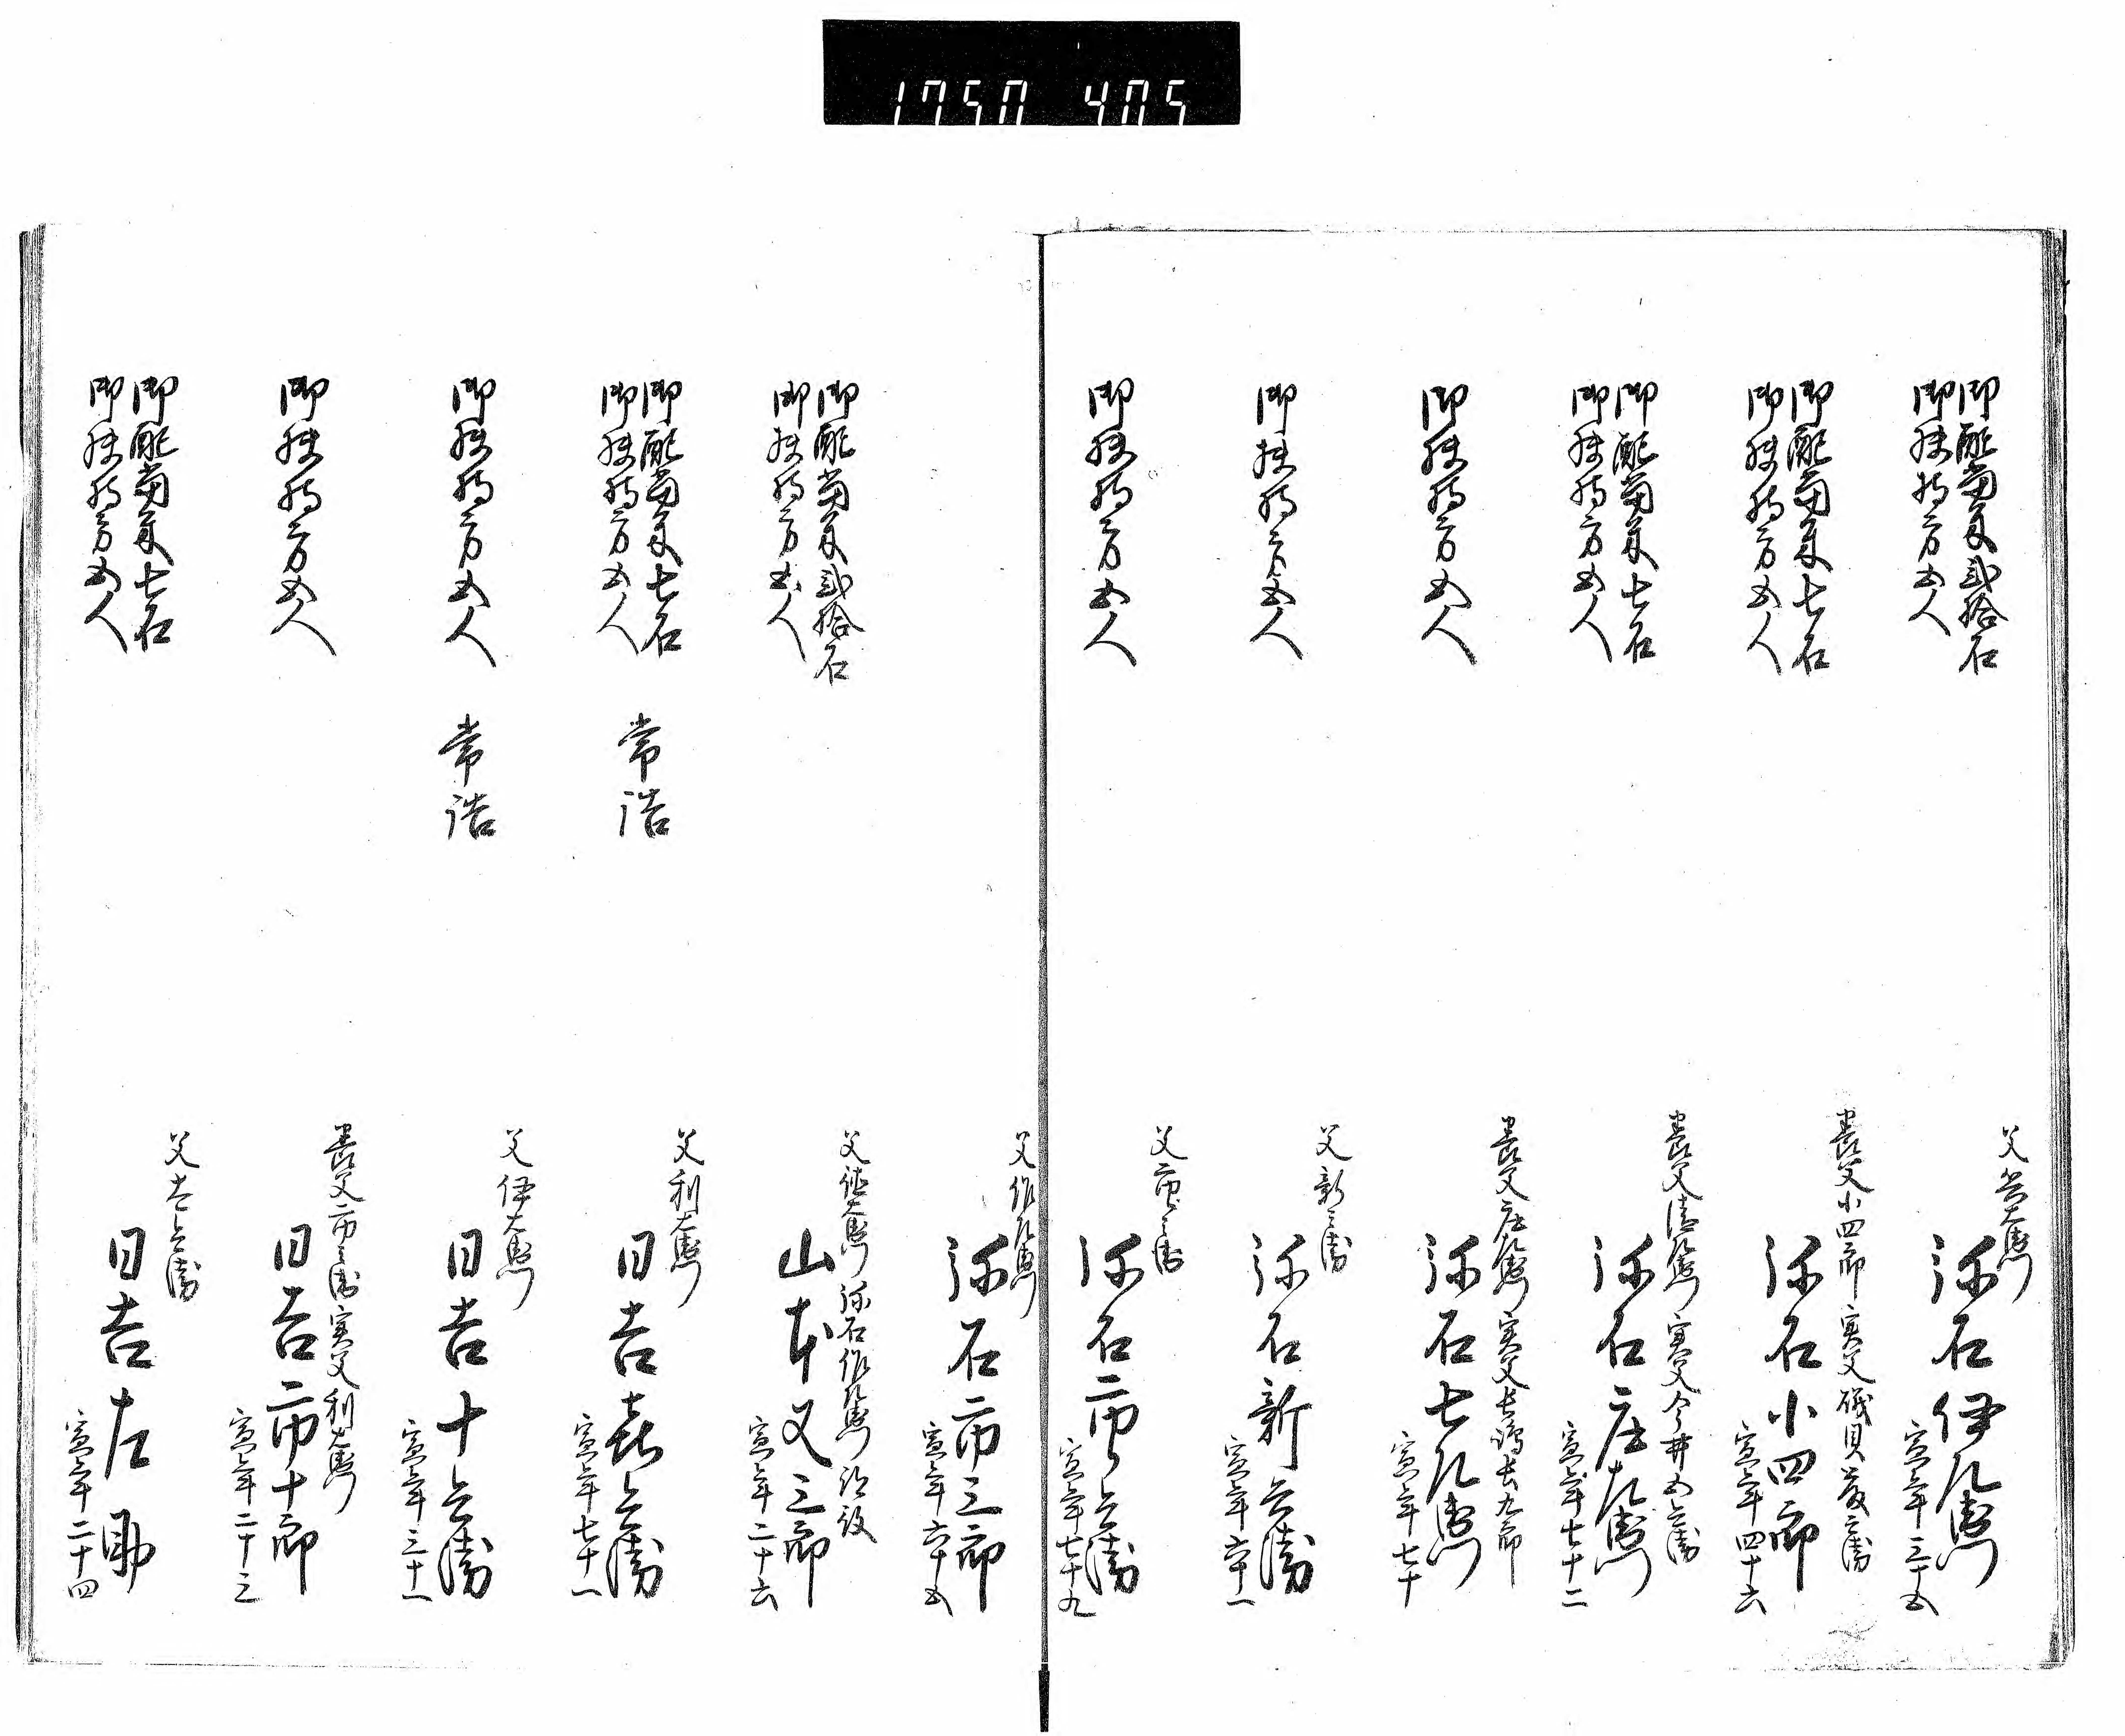 1750 405
御配当米弐拾石
御扶持方五人
弥石伊左衛門
寅年三十五
御配当米七石
御扶持方五人
養父小四郎 実父磯貝
弥石小四郎
寅年四十六
御配当米七石
御扶持方五人
実父今井五兵衛
弥石庄左衛門
寅年七十二
御扶持方五人
養父庄左衛門 実父
弥石七左衛門
寅年七十
御扶持方五人
父新兵衛
弥石新兵衛
寅年六十一
御扶持方五人
父市兵衛
弥石市兵衛
寅年七十九
父作左衛門
弥石市三郎
寅年六十五
御配当米弐拾石
御扶持方五人
弥石作左衛門
山本又三郎
寅年二十六
御配当米七石
御扶持方五人
常浩
父利左衛門
日吉喜兵衛
寅年七十一
御扶持方五人
常浩
父伊左衛門
日吉十兵衛
寅年三十一
御扶持方五人
養父市兵衛 実父利左衛門
日吉市十郎
寅年二十三
御配当米七石
御扶持方五人
父太兵衛
日吉左助
寅年二十四